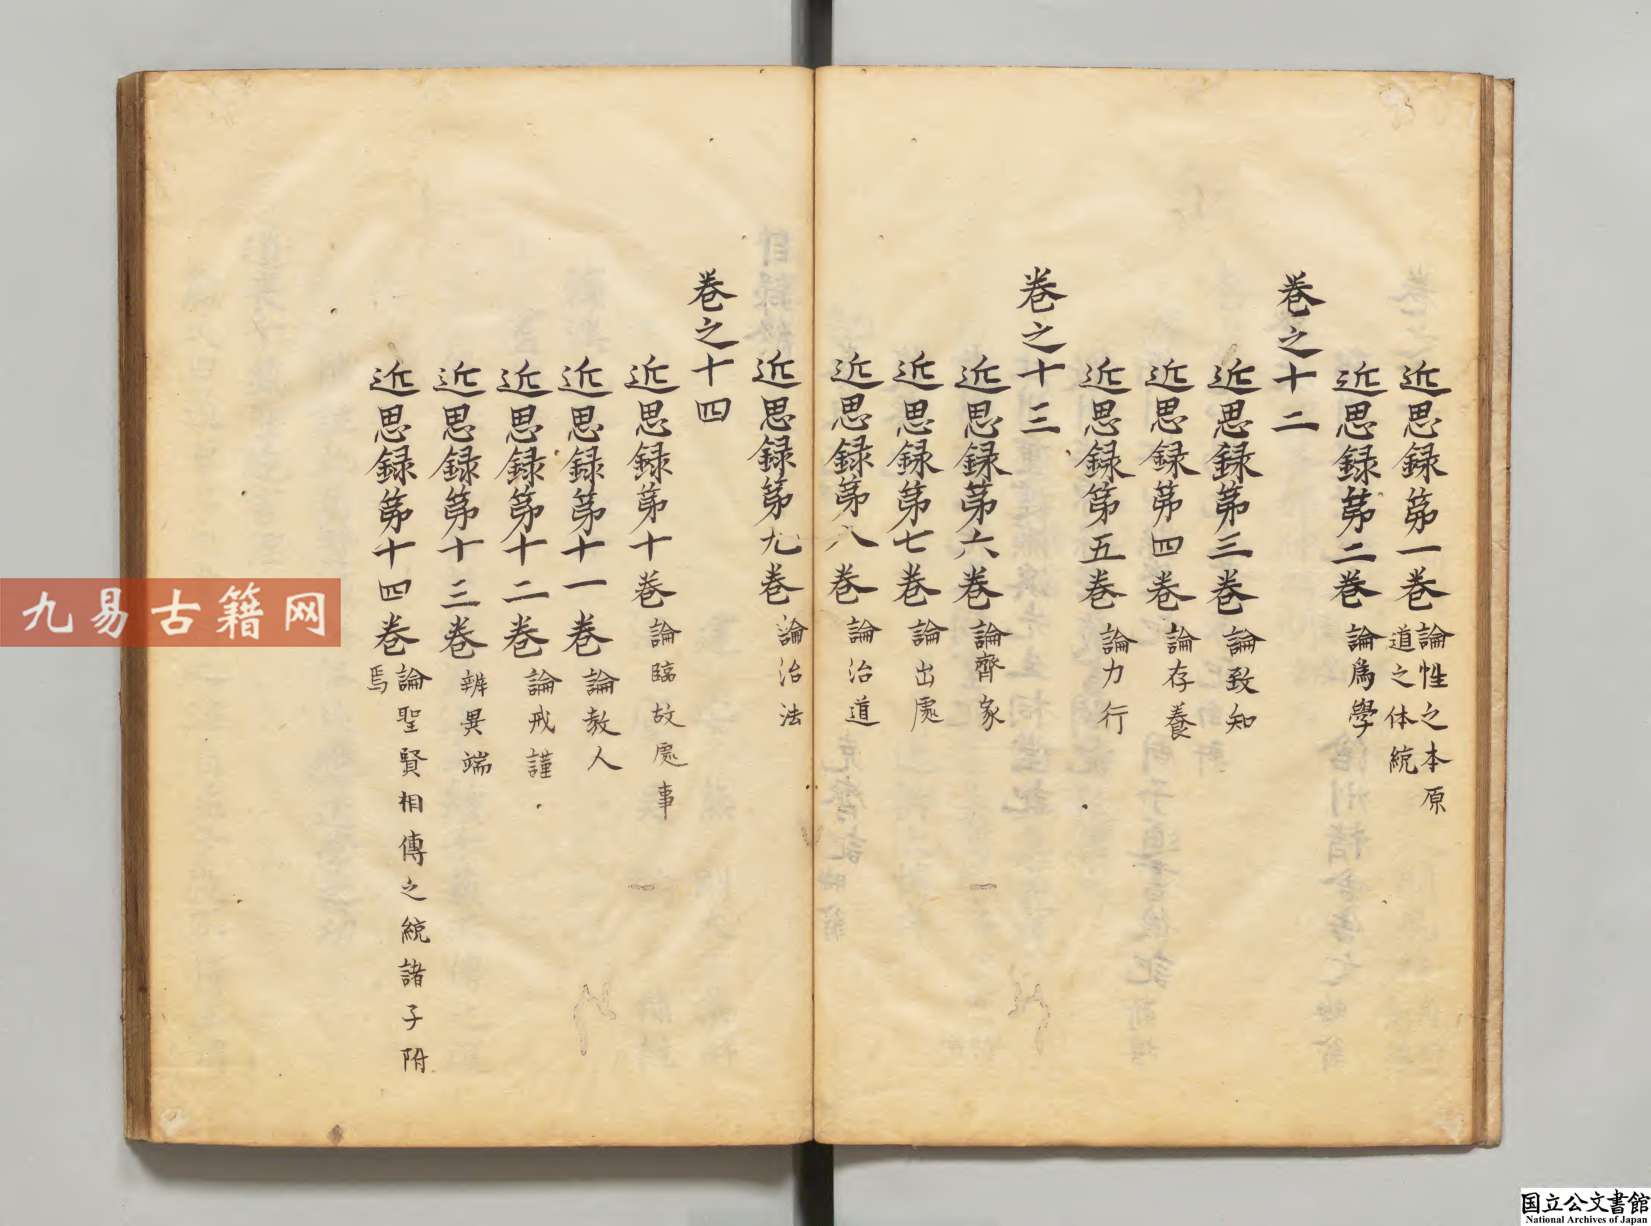 近思録第一卷 論性之本原
道之体統
近思録第二卷 論為學
卷之十二
近思録第三卷 論致知
近思録第四卷 論存養
近思録第五卷 論力行
卷之十三
近思録第六卷 論齊家
近思録第七卷 論出處
近思録第八卷 論治道
近思録第九卷 論治法
卷之十四
近思録第十卷 論臨故處事
近思録第十一卷 論教人
近思録第十二卷 論戒謹
近思録第十三卷 辨異端
近思録第十四卷 論聖賢相傳之統諸子附
焉
九易古籍网
国立公文書館
National Archives of Japan